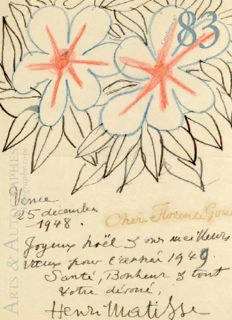 83
Vence
25 décembre
1948.
Cher Florence Gou
Joyeux Noël & vos meilleurs
vœux pour l'année 1949
Santé, Bonheur & tout
votre dévoué,
Henri Matisse
ARTS & AUTOGRAPHES